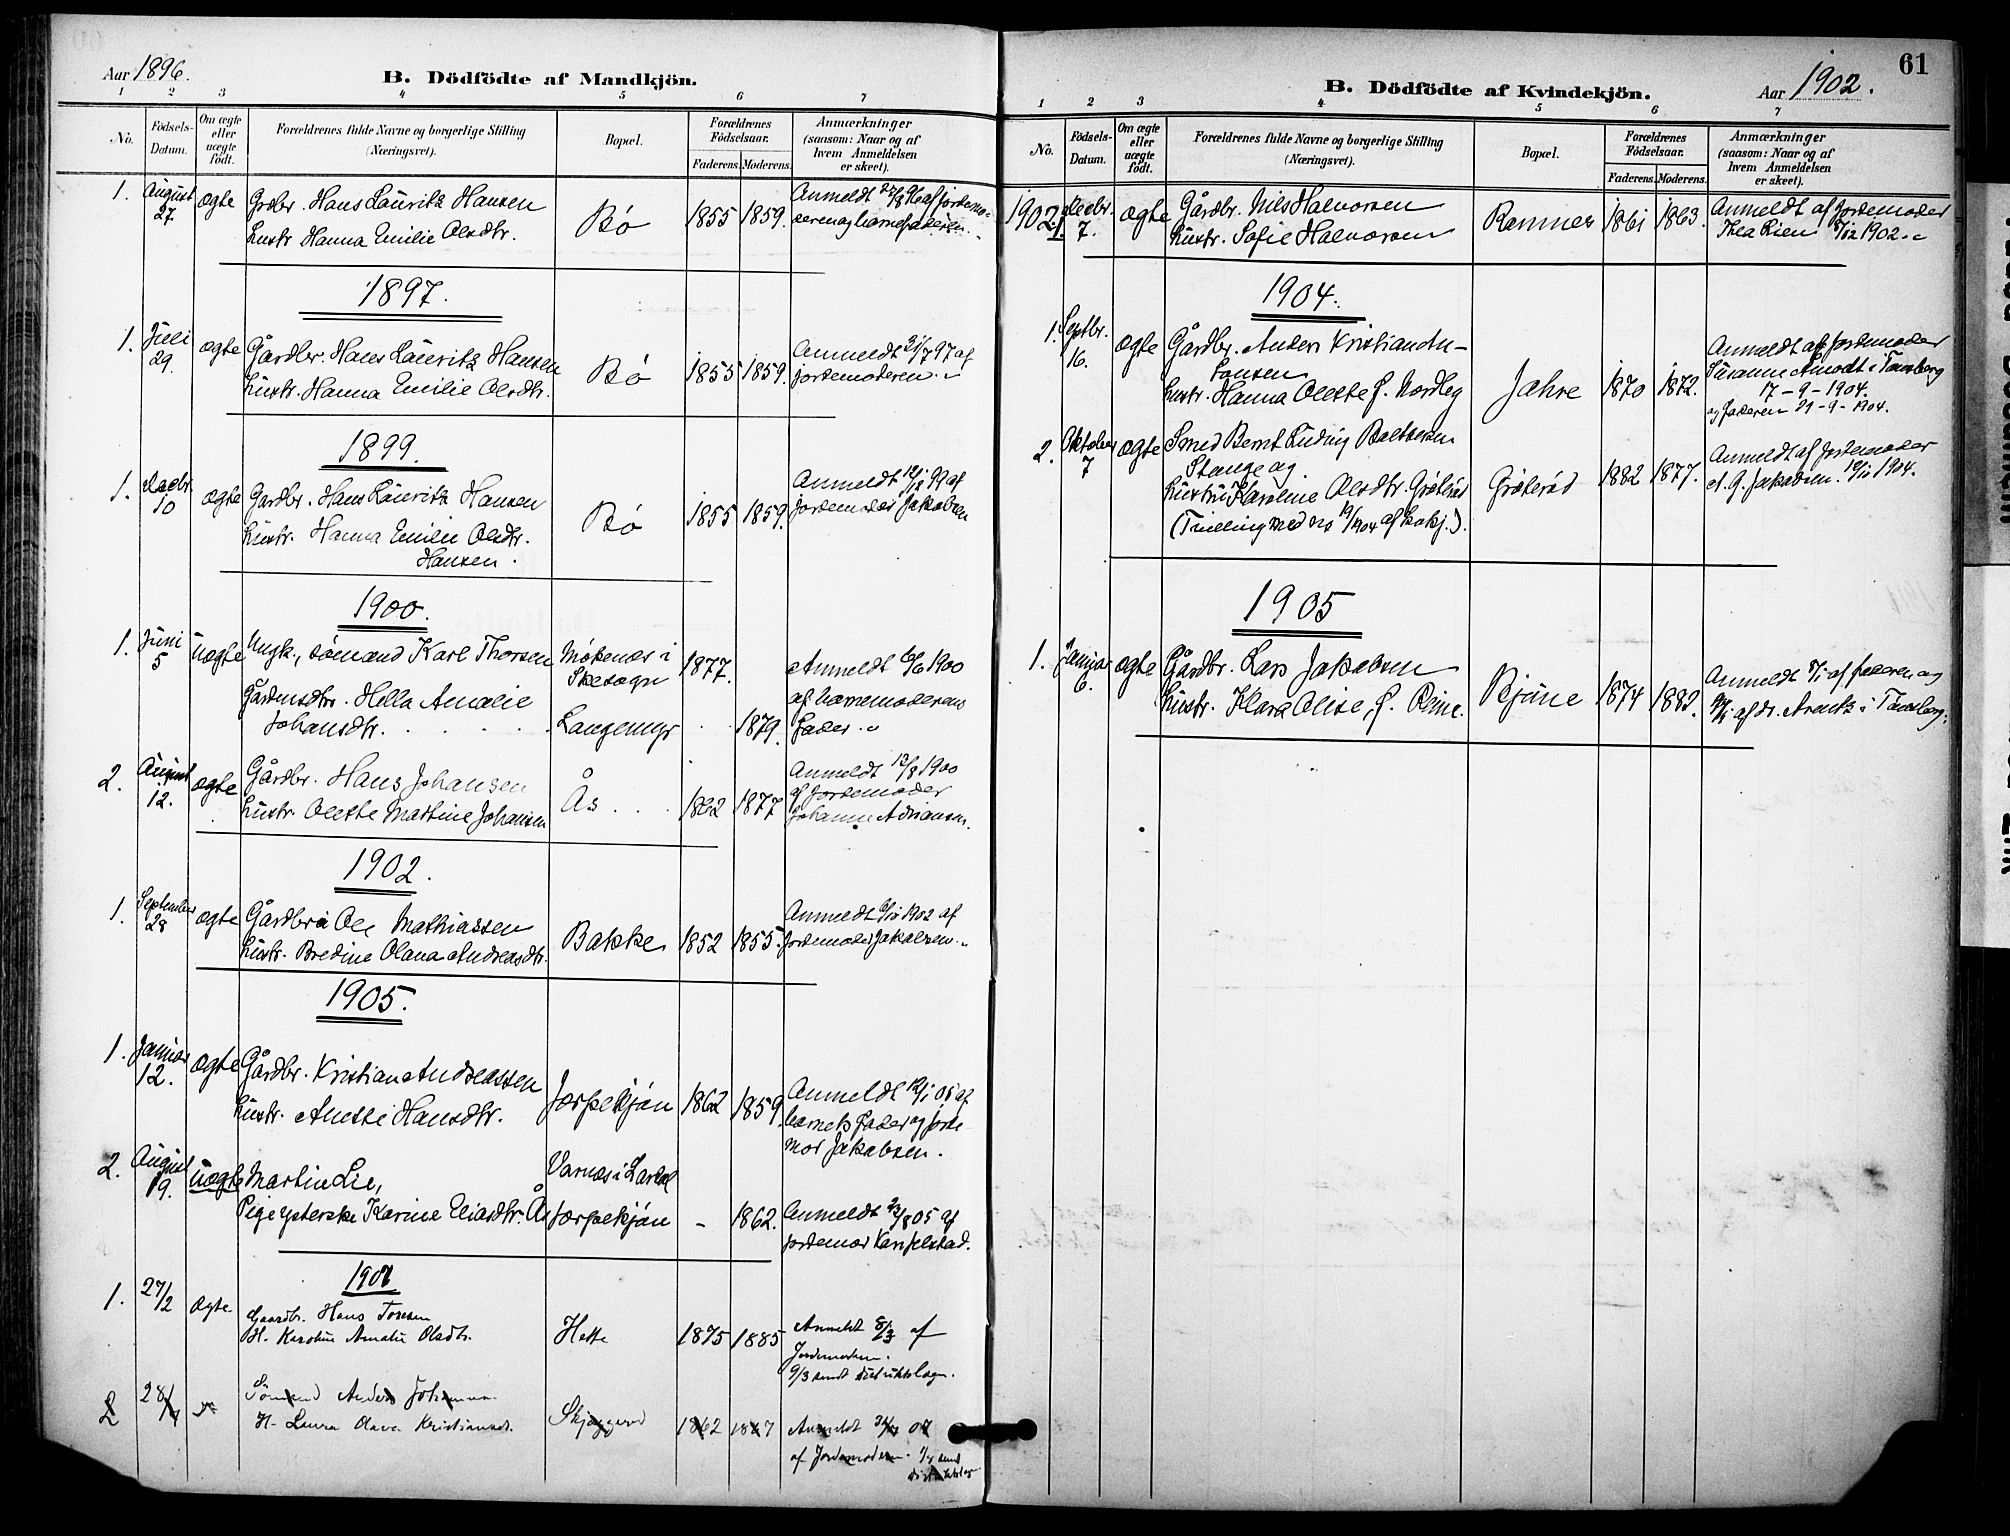 Aar 1896.
B. Dödfödte af Mandkjön.
1 2 3 4 5 6 7
No.
Födsels-
Datum.
Om ægte
eller
uægte
født.
Forældrenes fulde Navne og borgerlige Stilling
(Næringsvei).
Bopæl.
Forældrenes
Födselsaar.
Faderens. Moderens.
Anmærkninger
(saasom: Naar og af
hvem Anmeldelsen
er skeet).
1. August 27. ægte Grdbr. Hans Lauritz Hansen
hustr. Hanna Emilie Olsdtr. Bø 1855 1859.
Anmeldt 27/8 96 af jordemo-
deren og barnefaderen.
1897.
1. Juli 29. ægte Gårdbr. Hans Lauritz Hansen
hustr. Hanna Emilie Olsdtr. Bø 1855 1859.
Anmeldt 31/7 97 af
jordemoderen.
1899.
1. Decbr. 10 ægte Gardbr. Hans Lauritz Hansen
hustr. Hanna Emilie Olsdtr.
Hansen. Bø 1855 1859.
Anmeldt af
jordemoder Jakobsen
1900.
1. Juni 5 uægte Ungk., sömand Karl Thorsen
Gårdmsdtr. Hella Amalie
Johansdtr.
Møkenæs i
Skesogn
Langemyr
1877.
1879.
Anmeldt 6/6 1900
af barnemoderens
fader.
2. August 12. ægte Gårdbr. Hans Johansen
hustr. Oleste Martine Johansen Ås 1862 1877
Anmeldt 12/8 1900
af jordemoder
Johanne Adriansen.
1902.
1. September 28 ægte Gårdbr. Ole Mathiassen
hustr. Bredine Olava Andreasdtr. Bakke 1852 1855.
Anmeldt 1902 af
jordemoder Jakobsen.
1905.
1. Januar 12. ægte Gårdbr. Kristian Andreassen
hustr. Anette Hansdtr. Jerpekjøn 1862 1859.
Anmeldt 12/1 05 af
barnets fader og jorde-
mor Jakobsen.
2. August 19. uægte Martin Lie,
Pige ysterske Karine Eliasdtr. Ås
Varnæs i Lardal
Jerpekjøn - 1862.
Anmeldt 05 af
jordemor Karpelstad.
190
1. 27/2 ægte Gaardbr. Hans Toresen
H. Karoline Amalie Olsdtr. Hette 1875 1885
Anmeldt 8/3 af
Jordemoderen.
9/3 sendt distriktslægen.
2 28/ Sömand Anders Johannes
H. Laura Olava Kristiansdt. 1862 1867
Anmeldt
af Jordemoderen. sendt
61
B. Dödfödte af Kvindekjön.
Aar 1902.
1 2 3 4 5 6 7
No.
Födsels-
Datum.
Om ægte
eller
uægte
født.
Forældrenes fulde Navne og borgerlige Stilling
(Næringsvei).
Bopæl.
Forældrenes
Födselsaar.
Faderens. Moderens.
Anmærkninger
(saasom: Naar og af
hvem Anmeldelsen
er skeet).
1902 1 Decbr. 7. ægte Gårdbr. Nils Halvorsen
hustr. Sofie Halvorsen Ramnes 1861 1863.
Anmeldt af jordemoder
Thea Lien 8/12 1902.
1904.
1. Septbr. 16. ægte Gårdbr. Anders Kristian An-
tonsen
hustr. Hanna Oleste f. Nordby Jahre 1870 1872.
Anmeldt af jordemoder
Susanne Amodt i Tønsberg
17-9-1904.
og faderen 21-9-1904.
2. Oktober 7 ægte Smed Bernt Ludvig Baltsersen
Stange og
hustru Karoline Olsdtr. Gröterød
(Tvilling med no 19/1904 af kvkj.).
Gröterød 1882 1877.
Anmeldt af jordemoder
A. G. Jakobsen. 1904.
1905
1. Januar 6. ægte Gårdbr. Lars Jakobsen
hustr. Klara Olise, f. Olsine. Bjune 1874 1882.
Anmeldt 7/1 af faderen og
af dr. Arentz i Tønsberg.